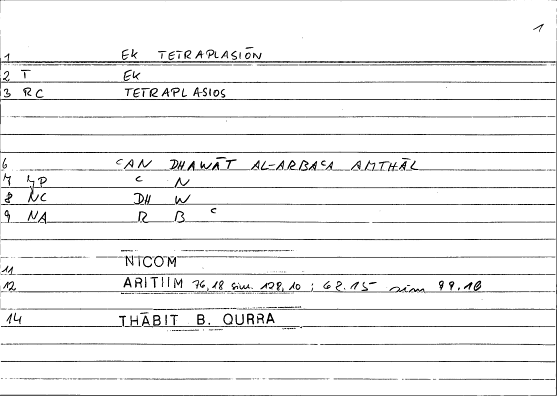 1
1 EK TETRAPLASIŌN
2 T EK
3 RC TETRAPLASIOS
6 ᶜAN DHAWĀT AL-ARBAᶜA AMTHĀL
7 ᶜ N
8 NC DH W
9 NA R B ᶜ
11 NICOM
12 ARITIIM 76,18 sim. 128,10 ; 62.15 sim 99.10
14 THĀBIT B. QURRA